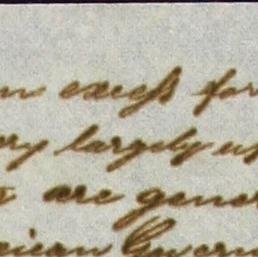 n excess for
ry largely u
s are gener
rican Govern